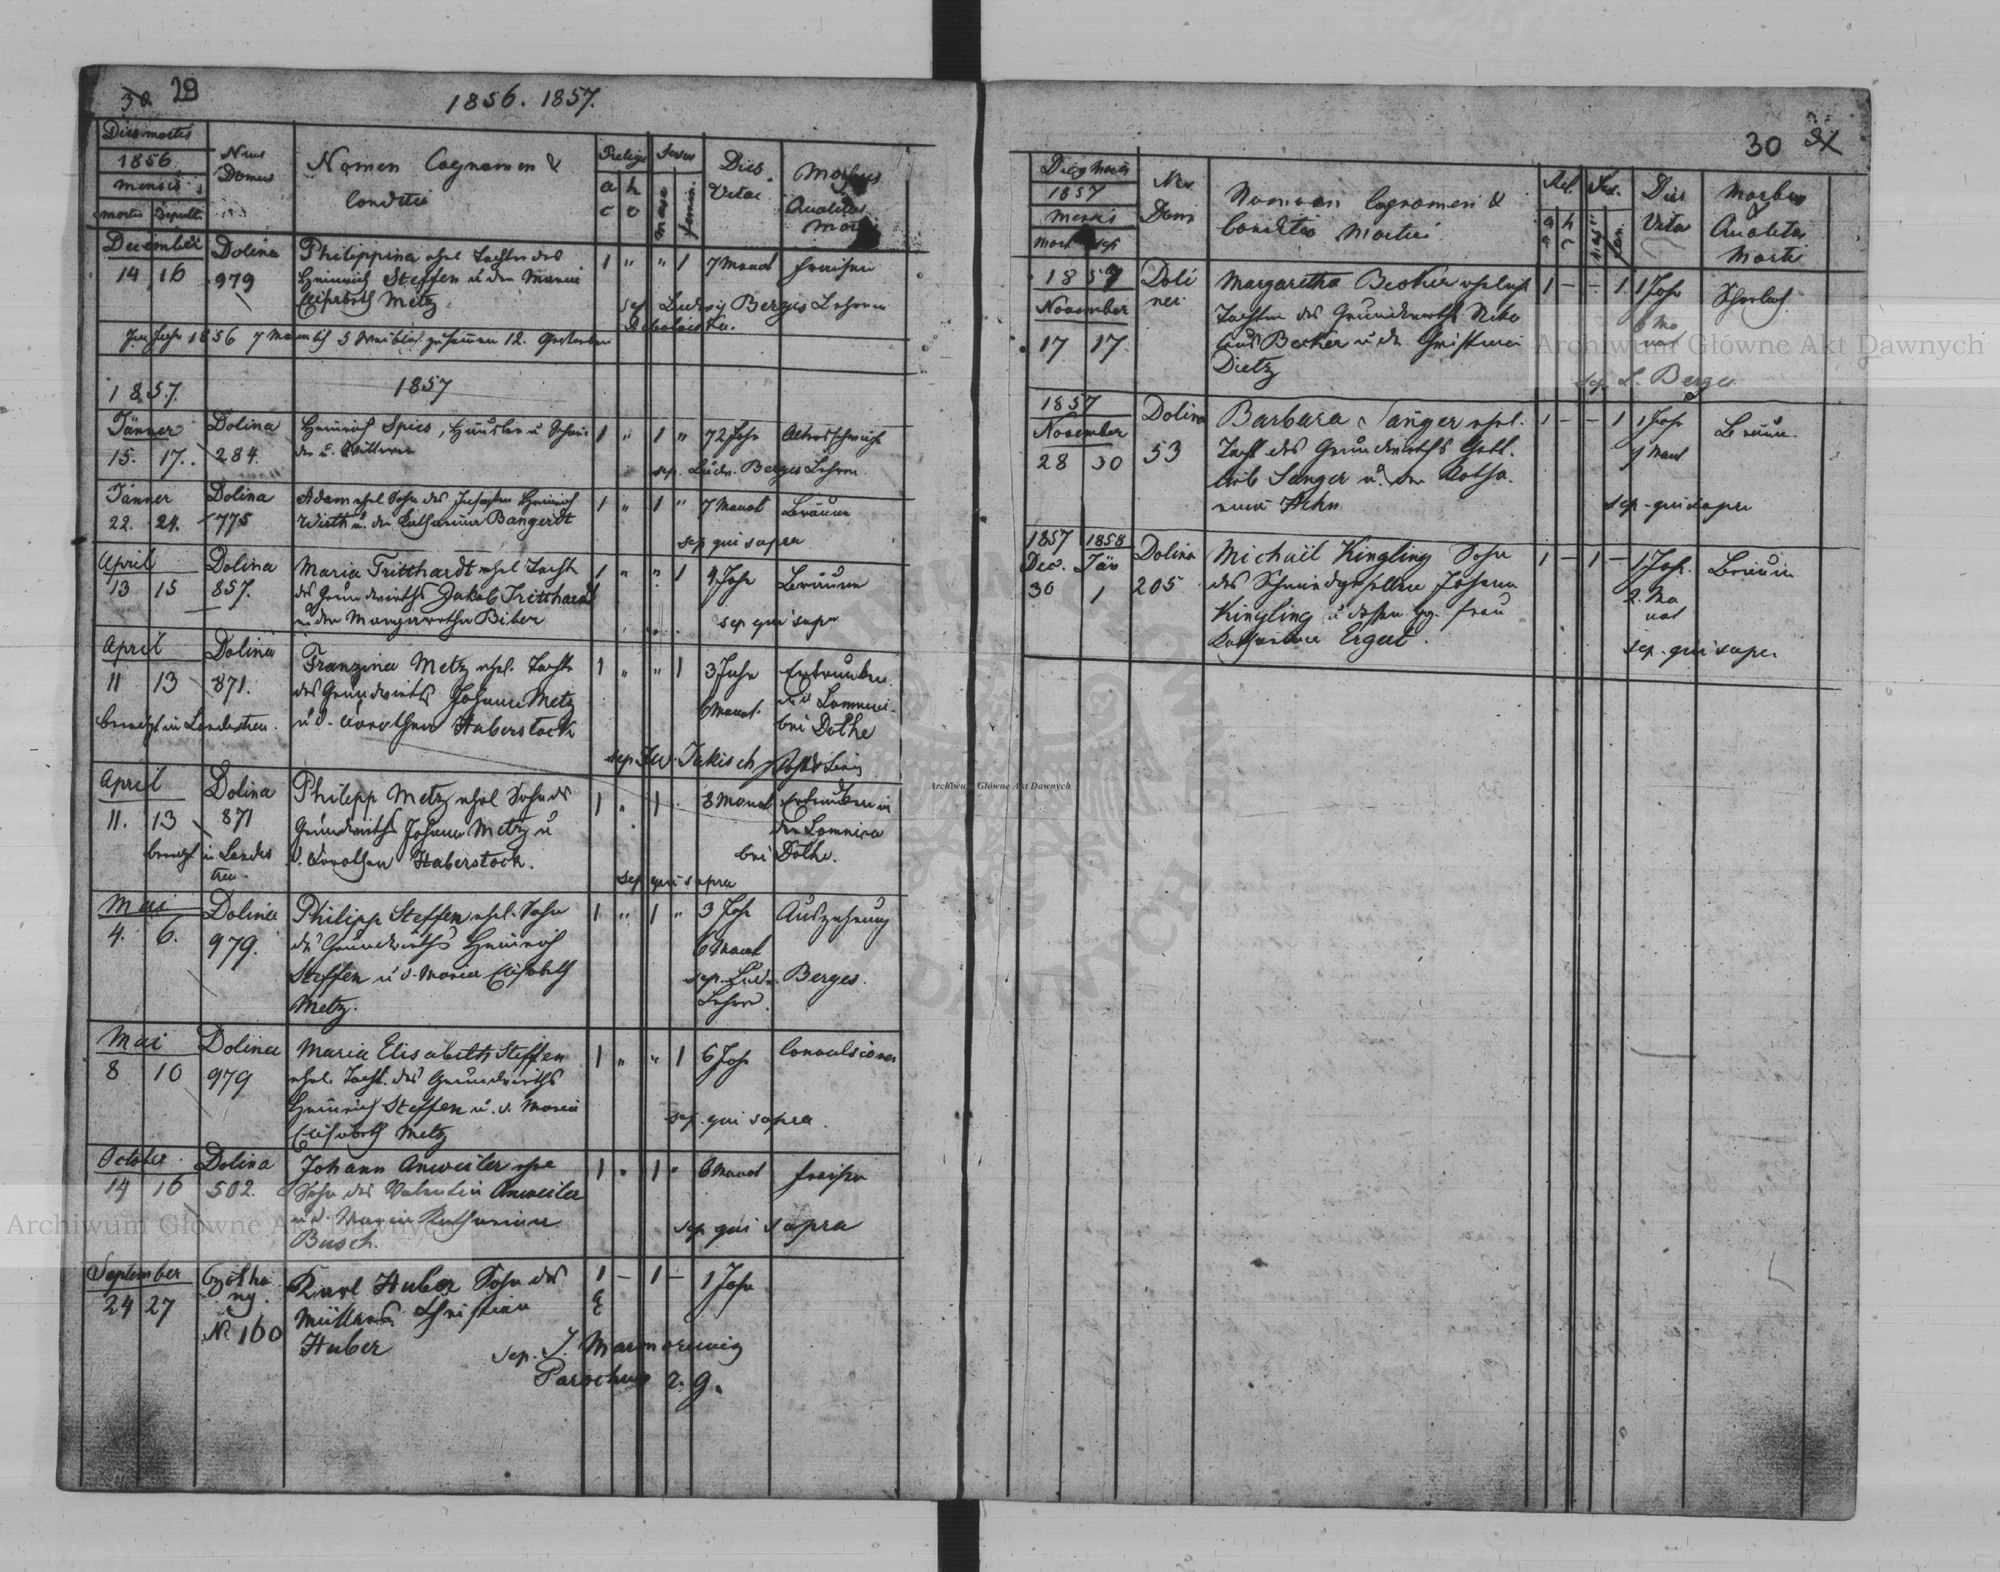 30 29
1856. 1857.
Dies mortis
1856
mensis
mortis Sepult.
Nrus
Domus
Nomen Cognomen &
Conditio
Religio
a c
h c
Sexus
masc
femin.
Dies
Vitae
Morbus
Qualitas
Mortis
December
14 16
Dolina
979
Philippina ehel Tochter des
Heinrich Steffen u der Maria
Elisabeth Metz
1 " " 1
7 Monat
Fraisen
sep. Ludwig Berges Lehrer
Im Jahr 1856 7 Männlich 5 Weiblich zusammen 12. Gestorben
1857.
1857
Jänner
15. 17.
Dolina
284.
Heinrich Spies,
1 " 1 "
72 Jahr
Altersschwäche
sep. Ludw. Berges Lehrer
Jänner
22. 24.
Dolina
775
Adam ehel Sohn des Insassen Heinrich
Wirth u. der Catharina Bangerdt
1 " 1 "
7 Monat
Bräune
sep qui supra
April
13 15
Dolina
857.
Maria Tritthardt ehel Tocht
des Grundwirths Jakob Tritthardt
u der Margaretha Biber
1 " " 1
9 Jahr
Bräune
sep qui supr
April
11 13
Dolina
871.
beerdigt in Landestreu.
Franzina Metz ehel. Tocht
des Grundwirts Johann Metz
u d. Dorothea Haberstock
1 " " 1
3 Jahr
6 Monat.
Ertrunken
in d Lomnica
bei Dolhe
sep. Jakisch
April
11. 13
Dolina
871
beerdigt in Landes
treu
Philipp Metz ehel Sohn des
Grundwirths Johann Metz u
d. Dorothea Haberstock.
1 " 1 .
8 Monat
Ertrunken in
der Lomnica
bei Dolhe.
sep qui supra
Mai
4. 6.
Dolina
979.
Philipp Steffen ehel. Sohn
des Grundwirths Heinrich
Steffen u d. Maria Elisabeth
Metz.
1 " 1 "
3 Jahr
6 Monat
Auszehrung
sep. Ludw. Berges.
Lehrer.
Mai
8 10
Dolina
979
Maria Elisabeth Steffen
ehel. Tocht. des Grundwirths
Heinrich Steffen u. d. Maria
Elisabeth Metz
1 " " 1
6 Jahr
Convulsionen
sep. qui supra.
October
14 16
Dolina
502.
Johann Anweiler ehe
Sohn des Valentin Anweiler
u d. Maria Katharina
Busch.
1 " 1 "
6 Monat
Fraisen
sep qui supra
September
24 27
No 160
Karl Huber Sohn des
Müllers Christian
Huber
1 – 1 –
1 Jahr
sep. J.
Parochus r. g.
30 31
Dies Mortis
1857
Mensis
Mort sep
Nrs
Domi
Nomen Cognomen &
Conditio Mortui
Rel.
a c
h c
Sex.
masc
fem.
Dies
Vitae
Morbus
Qualitas
Mortis
1857
November
17 17.
Doli
ner
Margaretha Becker ehelich
Tochter des Grundwirths Niko
laus Becker u. der Christina
Dietz
1 – – 1.
1 Jahr
6 Mo
nat
Scharlach.
sep. L. Berges
1857
November
28 30
Dolina
53
Barbara Sanger ehel.
Tocht des Grundwirths Gott
lieb Sanger u. der Katha
rina Hehn
1 – – 1
1 Jahr
9 Monat
Bräune.
sep. qui supra
1857 1858
Dec. Jän
30 1
Dolina
205
Michael Kingling Sohn
des Schmiedgesellen Johann
Kingling u dessen Frau
Katharina Ergat.
1 – 1 –
1 Jahr.
2. Mo
nat
Bräune
sep. qui supra
Archiwum Główne Akt Dawnych
Archiwum Główne Akt Dawnych
Archiwum Główne Akt Dawnych